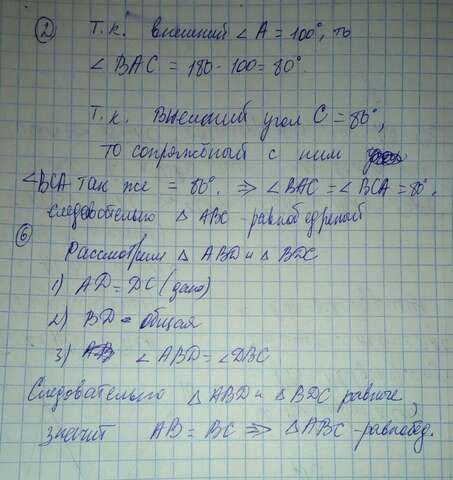 ② Т.к. внешний ∠ A = 100°, то
∠ BAC = 180 - 100 = 80°.
Т.к. Внешний угол C = 80°,
то сопряжённый с ним
∠BCA так же = 80°. ⇒ ∠BAC = ∠BCA = 80°.
Следовательно △ ABC - равнобедреный
⑥
Рассмотрим △ ABD и △ BDC
1) AD = DC (дано)
2) BD - общая
3) ∠ ABD = ∠DBC
Следовательно △ ABD и △ BDC равные,
значит AB = BC ⇒ △ABC - равнобед.